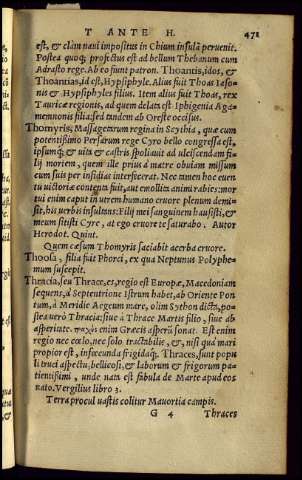 T ANTE H. 471
est, & clàm naui impositus in Chium insulã peruenit.
Postea quoq; profectus est ad bellum Thebanum cum
Adrasto rege. Ab eo fiunt patron. Thoantis, idos, &
Thoantias, id est, Hypsiphyle. Alius fuit Thoas Iaso-
nis & Hypsiphyles filius. Item alius fuit Thoas, rex
Tauricæ regionis, ad quem delata est Iphigenia Aga-
memnonis filia: sed tandem ab Oreste occisus.
Thomyris, Massagetarum regina in Scythia, quæ cum
potentissimo Persarum rege Cyro bello congressa est,
ipsumq; & uita & castris spoliauit ad ulciscendam fi-
lij mortem, quem ille prius à matre obuiam missum
cum suis per insidias interfecerat. Nec tamen hoc euen-
tu uictoriæ contenta fuit, aut emolliit animi rabies: mor
tui enim caput in utrem humano cruore plenum demi-
sit, his uerbis insultans: Filij mei sanguinem hausisti, &
meum sitisti Cyre, at ego cruore te saturabo. Autor
Herodot. Quint.
Quem cæsum Thomyris saciabit acerba cruore.
Thoosa, filia fuit Phorci, ex qua Neptunus Polyphe-
mum suscepit.
Thracia, seu Thrace, es, regio est Europæ, Macedoniam
sequens, à Septentrione Istrum habet, ab Oriente Pon
tum, à Meridie Aegeum mare, olim Sython dicta, po-
stea uerò Thracia: siue à Thrace Martis filio, siue ab
asperitate. enim Græcis asperũ sonat. Est enim
regio nec cœlo, nec solo tractabilis, &, nisi quà mari
propior est, infœcunda frigidaq́;. Thraces, sunt popu
li truci aspectu, bellicosi, & laborum & frigorum pa-
tientissimi, unde nata est fabula de Marte apud eos
nato. Vergilius libro 3.
Terra procul uastis colitur Mauortia campis.
G 4 Thraces